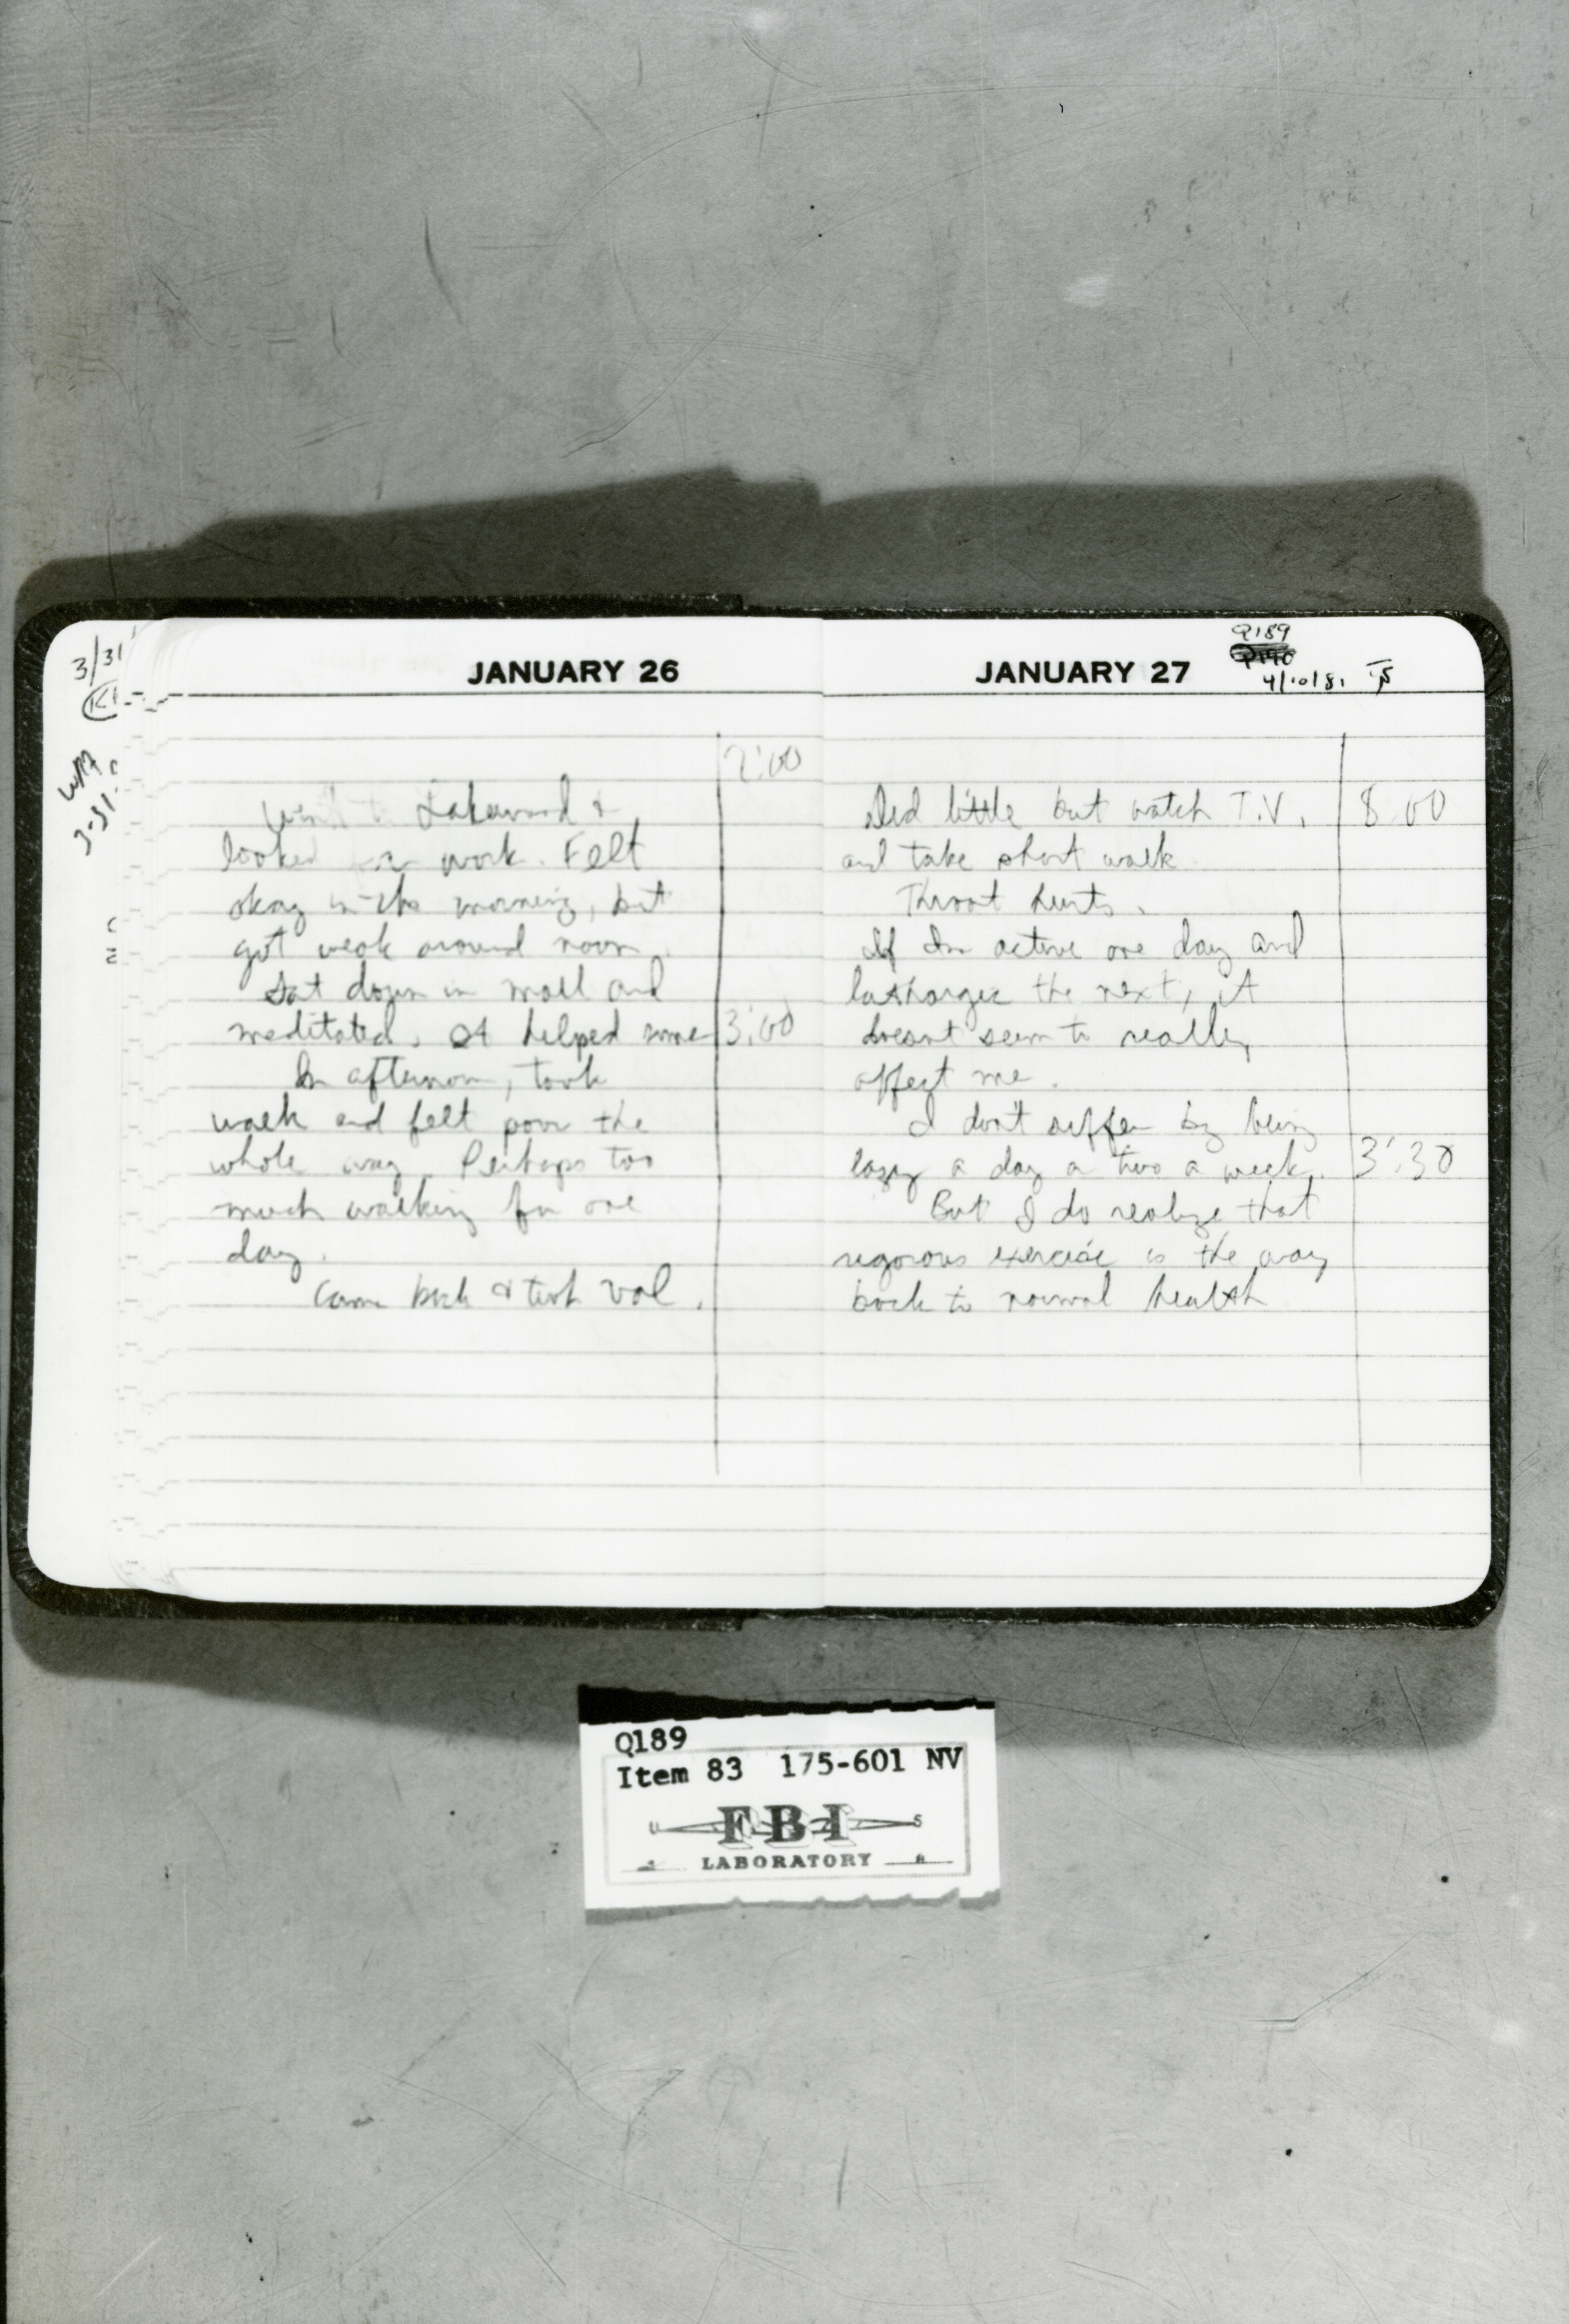 3/31
3-31-
JANUARY 26
2:00
Went to Lakewood &
looked for work. Felt
okay in the morning, but
got weak around noon.
Sat down in mall and
meditated. It helped some
3:00
In afternoon, took
walk and felt poor the
whole way. Perhaps too
much walking for one
day.
Came back & took Val.
JANUARY 27
Q189
Q190
4/10/81
Did little but watch T.V.,
8:00
and take short walk.
Throat hurts.
If Im active one day and
lathargic the next, it
doesnt seem to really
affect me.
I don't suffer by being
lazy a day or two a week.
3:30
But I do realize that
rigorous exercise is the way
back to normal health
Q189
Item 83 175-601 NV
U S
FBI
LABORATORY